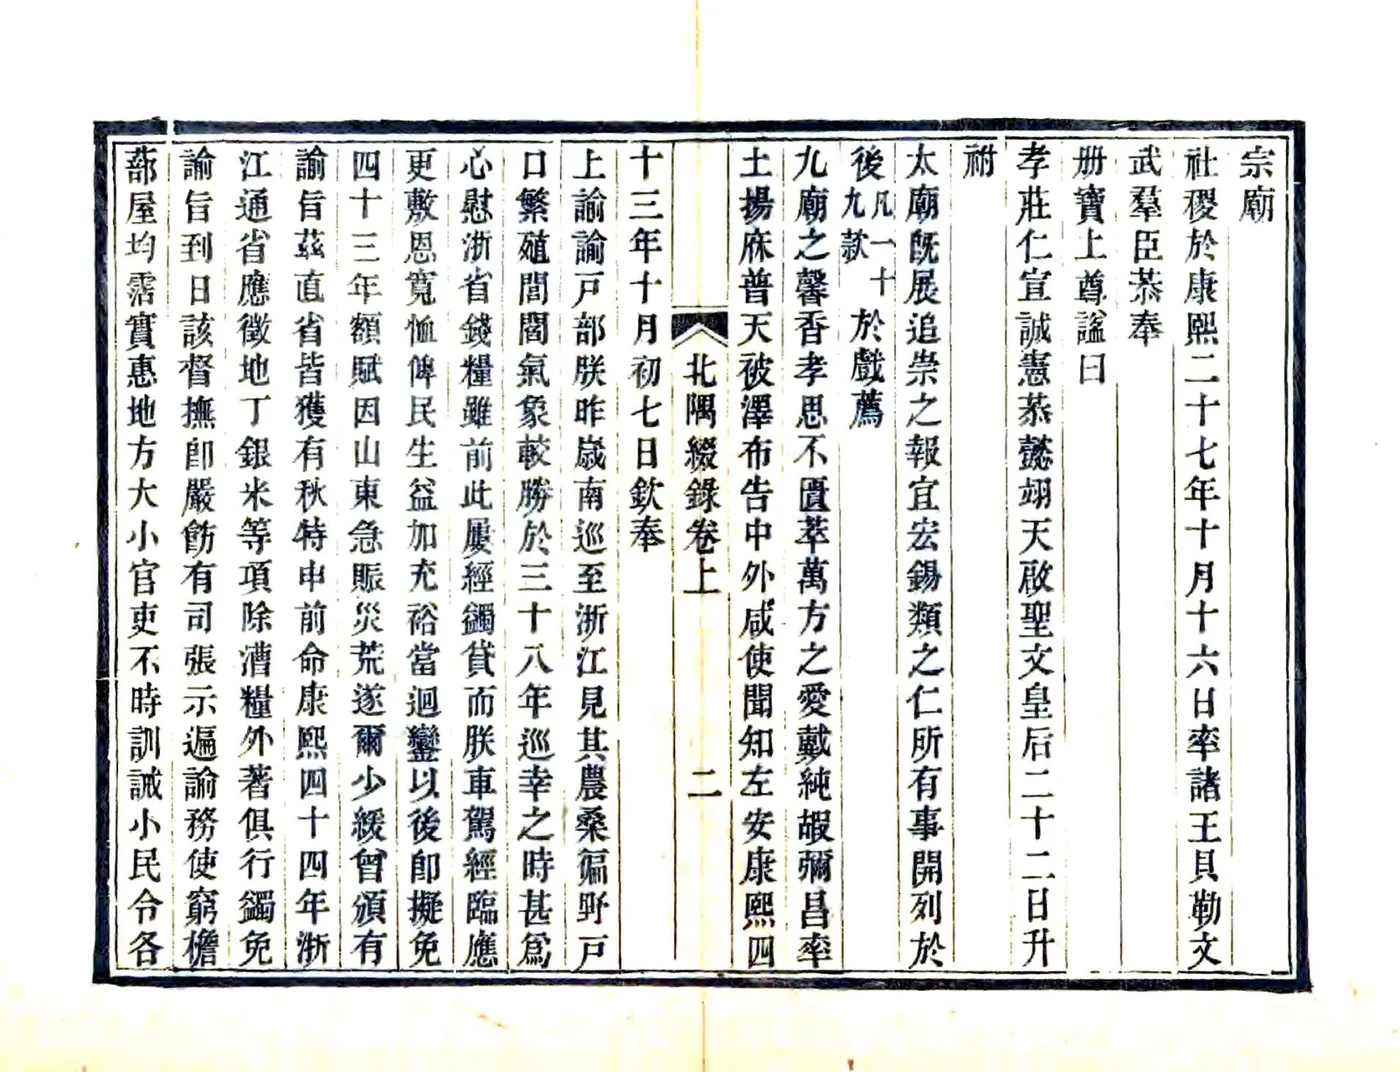 宗廟
社稷於康熙二十七年十月十六日率諸王貝勒文
武羣臣恭奉
册寶上尊謚曰
孝莊仁宣誠憲恭懿翊天啟聖文皇后二十二日升
祔
太廟旣展追崇之報宜宏錫類之仁所有事開列於
後凡一十九款於戲薦
九廟之馨香孝思不匱萃萬方之愛戴純嘏彌昌率
土揚庥普天被澤布告中外咸使聞知左安康熙四
北隅綴錄卷上 二
十三年十月初七日欽奉
上諭諭戸部朕昨歲南巡至浙江見其農桑徧野戸
口繁殖閭閻氣象較勝於三十八年巡幸之時甚爲
心慰浙省錢糧雖前此屢經蠲貸而朕車駕經臨應
更敷恩寛恤俾民生益加充裕當迴鑾以後卽擬免
四十三年額賦因山東急賑災荒遂爾少緩曾頒有
諭旨茲直省皆獲有秋特申前命康熙四十四年浙
江通省應徵地丁銀米等項除漕糧外著俱行蠲免
諭旨到日該督撫卽嚴飭有司張示遍諭務使窮檐
蔀屋均霑實惠地方大小官吏不時訓誡小民令各